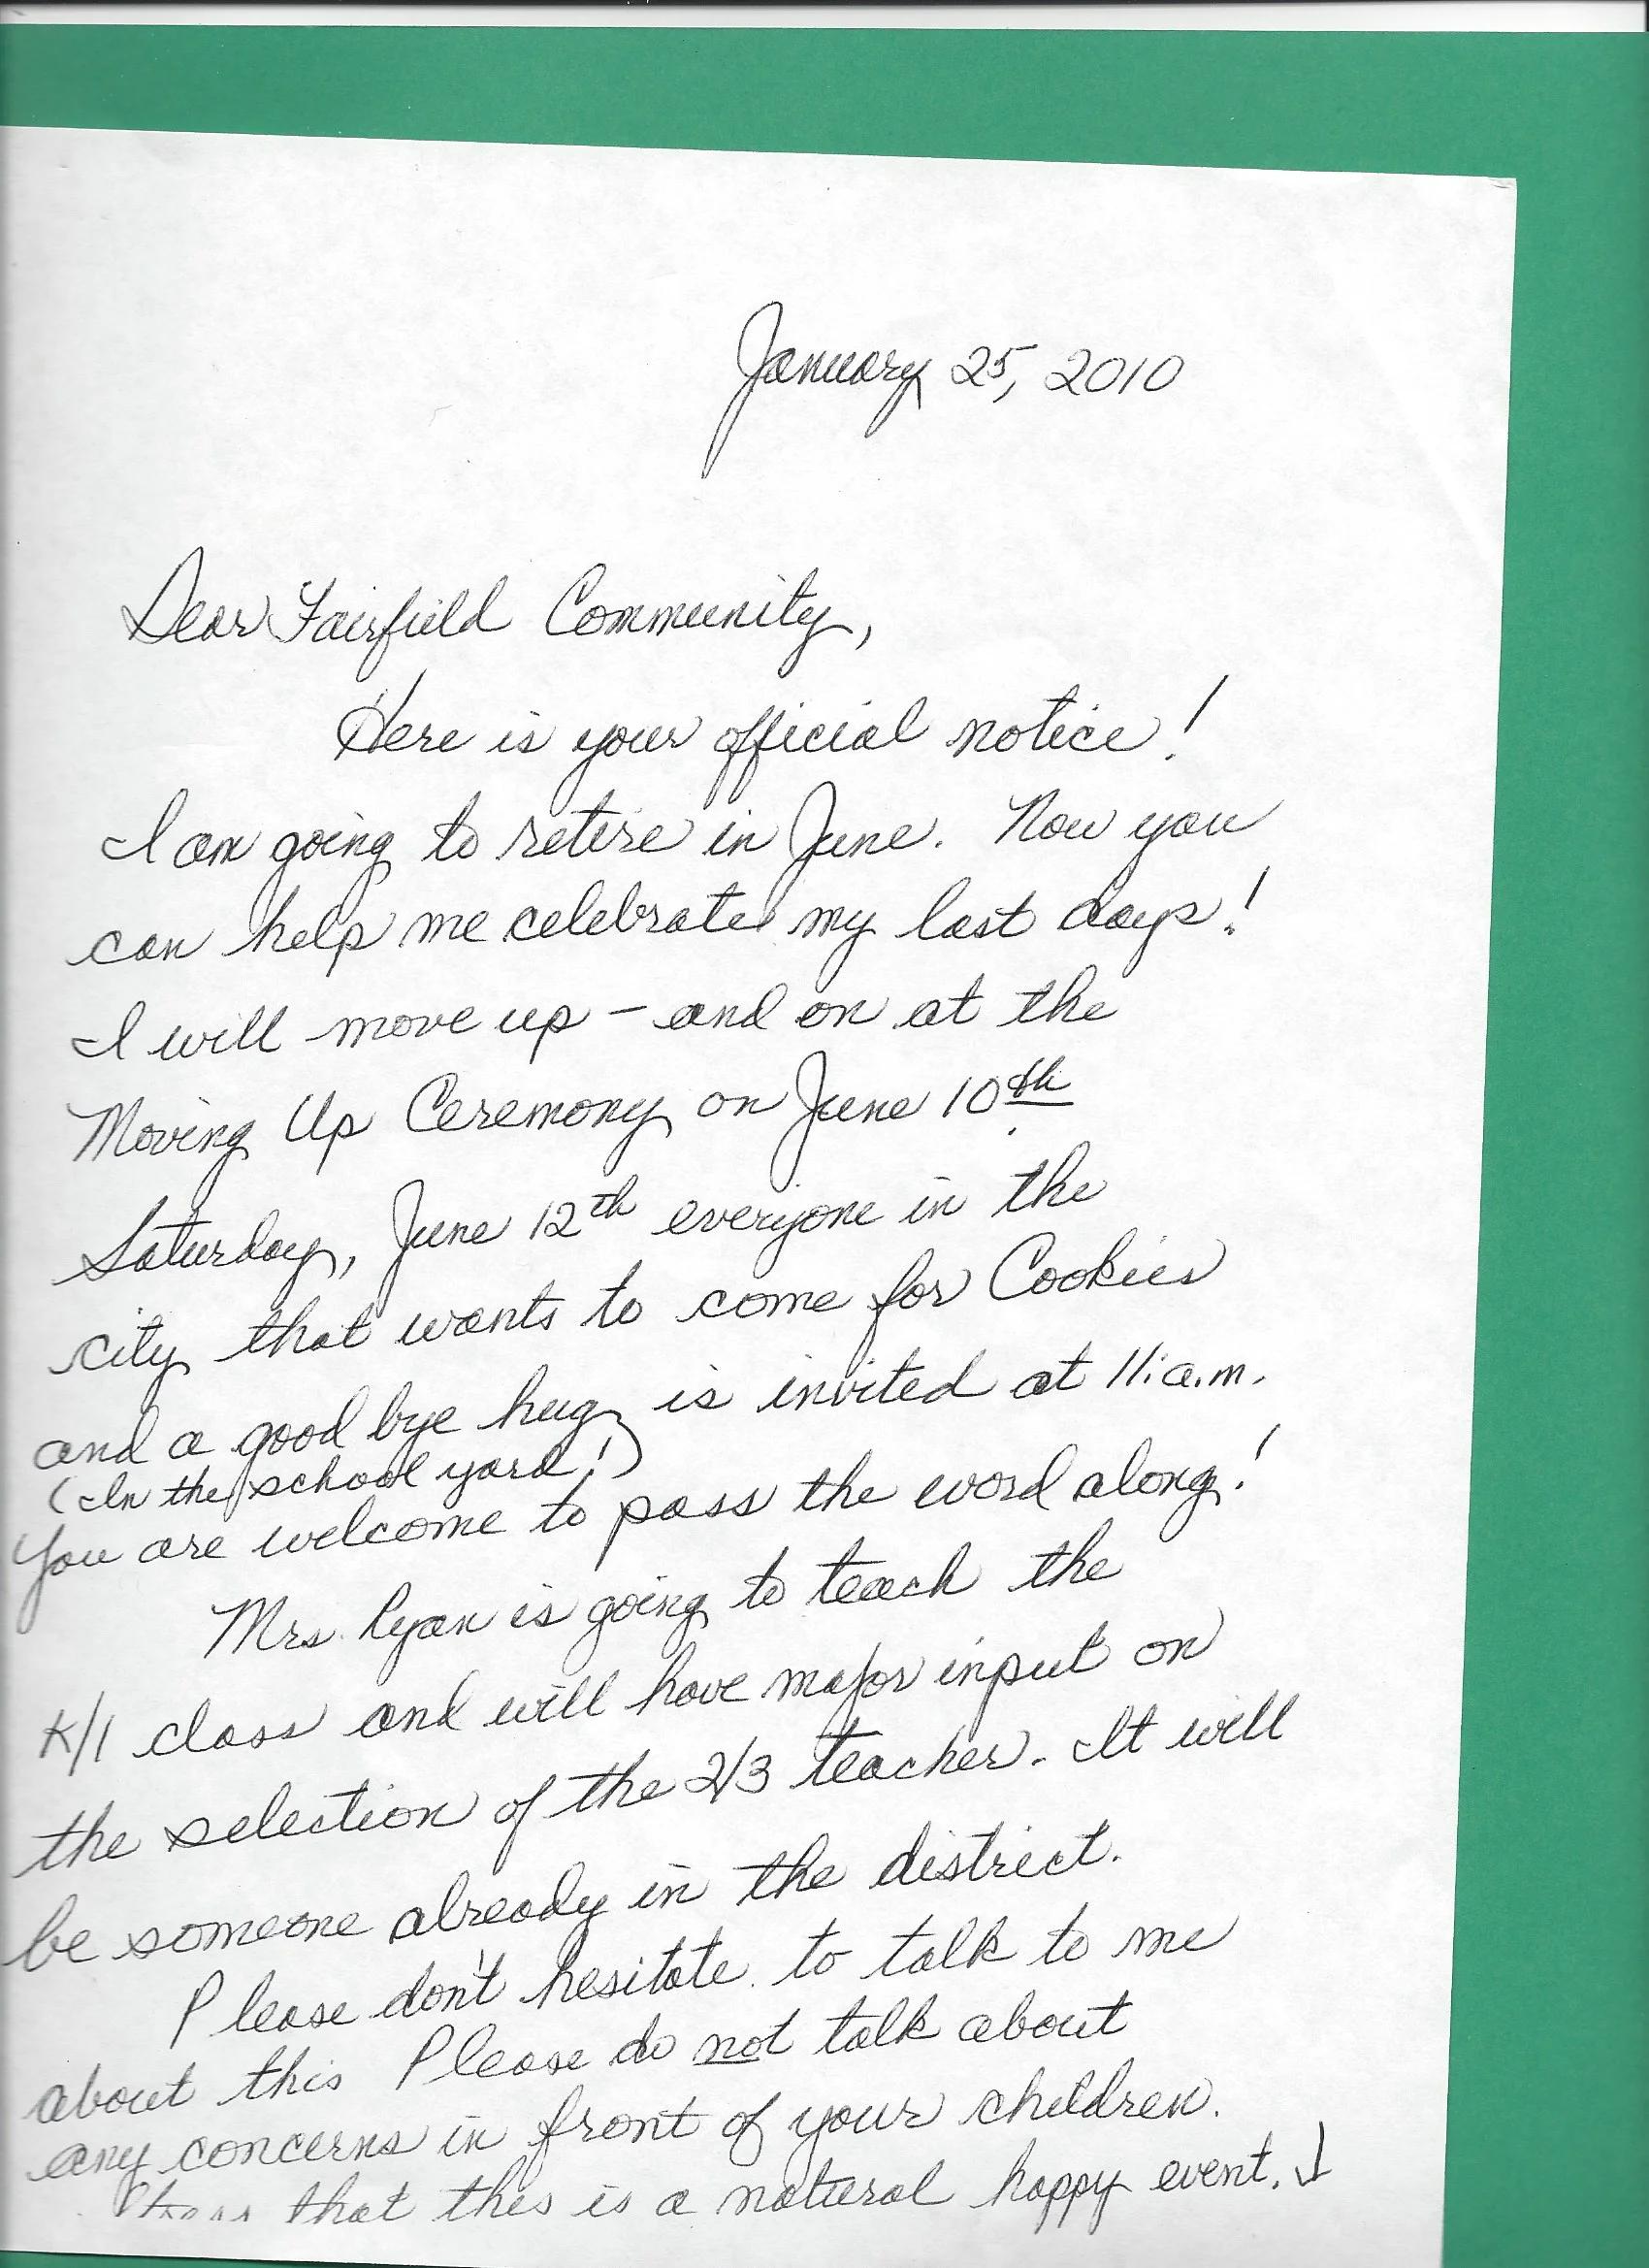 January 25, 2010
Dear Fairfield Community,
Here is your official notice!
I am going to retire in June. Now you
can help me celebrate my last days!
I will move up - and on at the
Moving Up Ceremony on June 10th.
Saturday, June 12th everyone in the
city that wants to come for Cookies
and a good bye hug is invited at 11:a.m.
(In the school yard!)
You are welcome to pass the word along!
Mrs. Ryan is going to teach the
K/1 class and will have major input on
the selection of the 2/3 teacher. It will
be someone already in the district.
Please don't hesitate to talk to me
about this Please do not talk about
any concerns in front of your children.
that this is a natural happy event. ↓